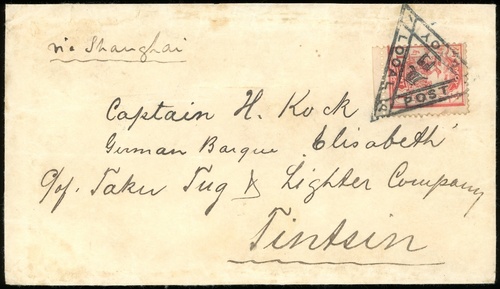 via Shanghai
LOCAL
POST
Captain H. Kock
German Barque "Elisabeth"
c/of. Taku Tug & Lighter Company
Tintsin